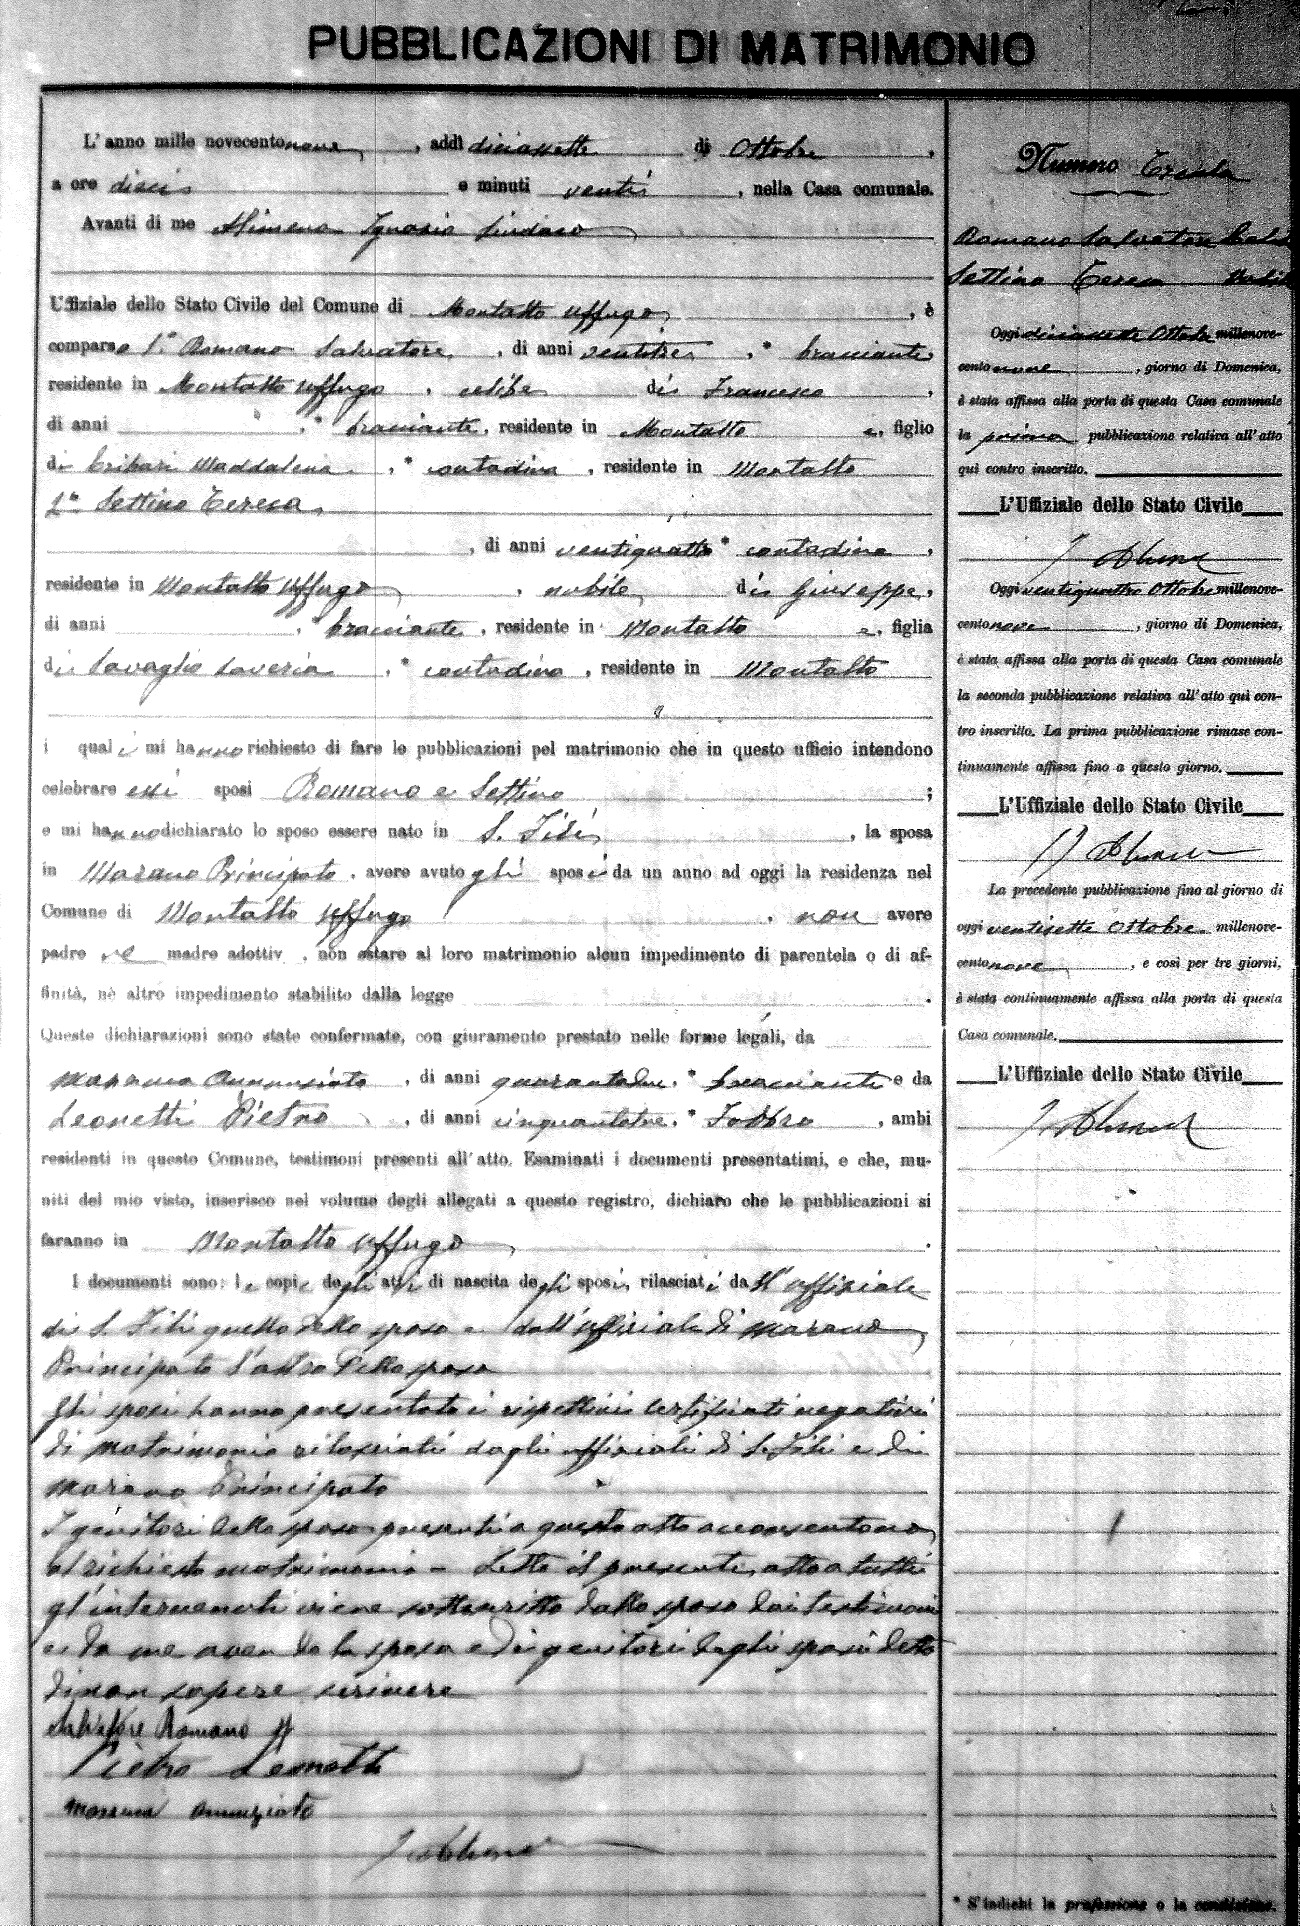 PUBBLICAZIONI DI MATRIMONIO
L'anno mille novecento nove, addì diciassette di Ottobre,
a ore dieci e minuti venti, nella Casa comunale.
Avanti di me Alimena Ignazio Sindaco
Uffiziale dello Stato Civile del Comune di Montalto Uffugo, è
comparso 1.° Romano Salvatore, di anni ventitre, * bracciante
residente in Montalto Uffugo, celibe di Francesco,
di anni , * bracciante, residente in Montalto e, figlio
di Cribari Maddalena, * contadina, residente in Montalto
2.a Settino Teresa,
, di anni ventiquattro * contadina,
residente in Montalto Uffugo, nubile di Giuseppe,
di anni , bracciante, residente in Montalto e, figlia
di Savaglio Saveria, * contadina, residente in Montalto
i quali mi hanno richiesto di fare le pubblicazioni pel matrimonio che in questo ufficio intendono
celebrare essi sposi Romano e Settino ;
e mi hanno dichiarato lo sposo essere nato in S. Fili, la sposa
in Marano Principato, avere avuto gli sposi da un anno ad oggi la residenza nel
Comune di Montalto Uffugo, non avere
padre ne madre adottiv , non ostare al loro matrimonio alcun impedimento di parentela o di af-
finità, nè altro impedimento stabilito dalla legge .
Queste dichiarazioni sono state confermate, con giuramento prestato nelle forme legali, da
Annunziato, di anni quarantadue, * bracciante e da
Leonetti Pietro, di anni cinquantatre, * Fabbro, ambi
residenti in questo Comune, testimoni presenti all'atto. Esaminati i documenti presentatimi, e che, mu-
niti del mio visto, inserisco nel volume degli allegati a questo registro, dichiaro che le pubblicazioni si
faranno in Montalto Uffugo.
I documenti sono: le copie degli atti di nascita degli sposi, rilasciati da ll'uffiziale
di S. Fili quello dello sposo e dall'uffiziale di Marano
Principato l'altro della sposa
Gli sposi hanno presentato i rispettivi certificati negativi
di matrimonio rilasciati dagli uffiziali di S. Fili e di
Marano Principato
I genitori dello sposo presenti a questo atto acconsentono
al richiesto matrimonio – Letto il presente atto a tutti
gl'intervenuti viene sottoscritto dallo sposo dai testimoni
e da me avendo la sposa e i genitori degli sposi detto
di non sapere scrivere
Salvatore Romano
Pietro Leonetti
Annunziato
Numero Trenta
Romano Salvatore
Settino Teresa
Oggi diciassette Ottobre millenove-
cento nove, giorno di Domenica,
è stata affissa alla porta di questa Casa comunale
la prima pubblicazione relativa all'atto
quì contro inscritto.
L'Uffiziale dello Stato Civile
Oggi ventiquattro Ottobre millenove-
cento nove, giorno di Domenica,
è stata affissa alla porta di questa Casa comunale
la seconda pubblicazione relativa all'atto quì con-
tro inscritto. La prima pubblicazione rimase con-
tinuamente affissa fino a questo giorno.
L'Uffiziale dello Stato Civile
La precedente pubblicazione fino al giorno di
oggi ventisette Ottobre millenove-
cento nove, e così per tre giorni,
è stata continuamente affissa alla porta di questa
Casa comunale.
L'Uffiziale dello Stato Civile
* S'indichi la professione o la condizione.